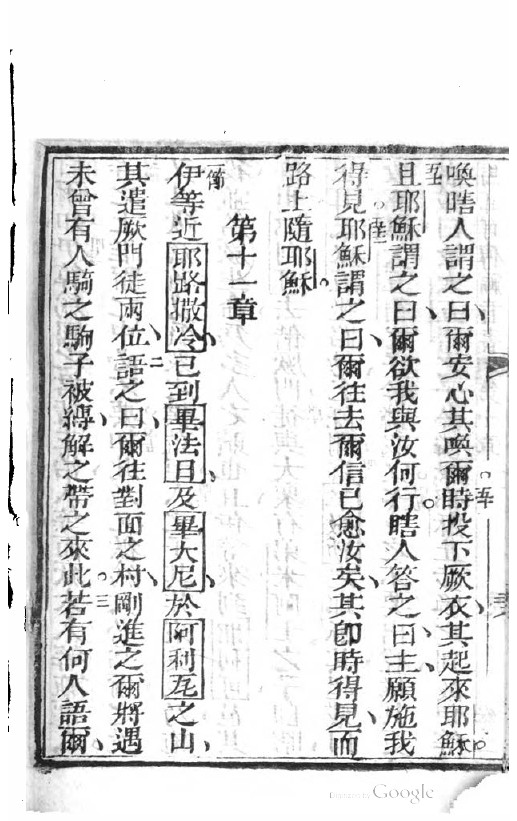 喚瞎人謂之曰、爾安心其喚爾時。五十投下厥衣、其起來耶穌。
五十一且耶穌謂之曰、爾欲我與汝何行。瞎人答之曰、主、願施我
得見。五十二耶穌謂之曰、爾往去爾信已愈汝矣、其即時得見、而
路上隨耶穌。
第十一章
一節伊等近耶路撒冷、已到畢法且、及畢大尼、於阿利瓦之山、
其遣厥門徒兩位、二語之曰、爾往對面之村、剛進之爾將遇
未曾有人騎之駒子被縛、解之帶之來此。三若有何人語爾、
Digitized by Google